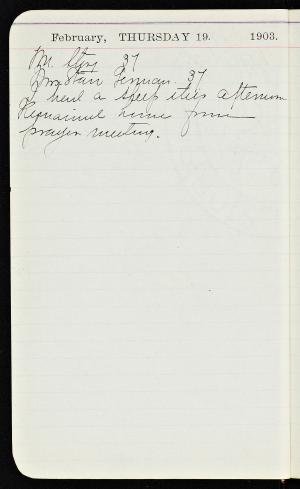 February, THURSDAY 19. 1903.
Mr. Story 37
37
had a sleep this afternoon
Remained home from
prayer meeting.